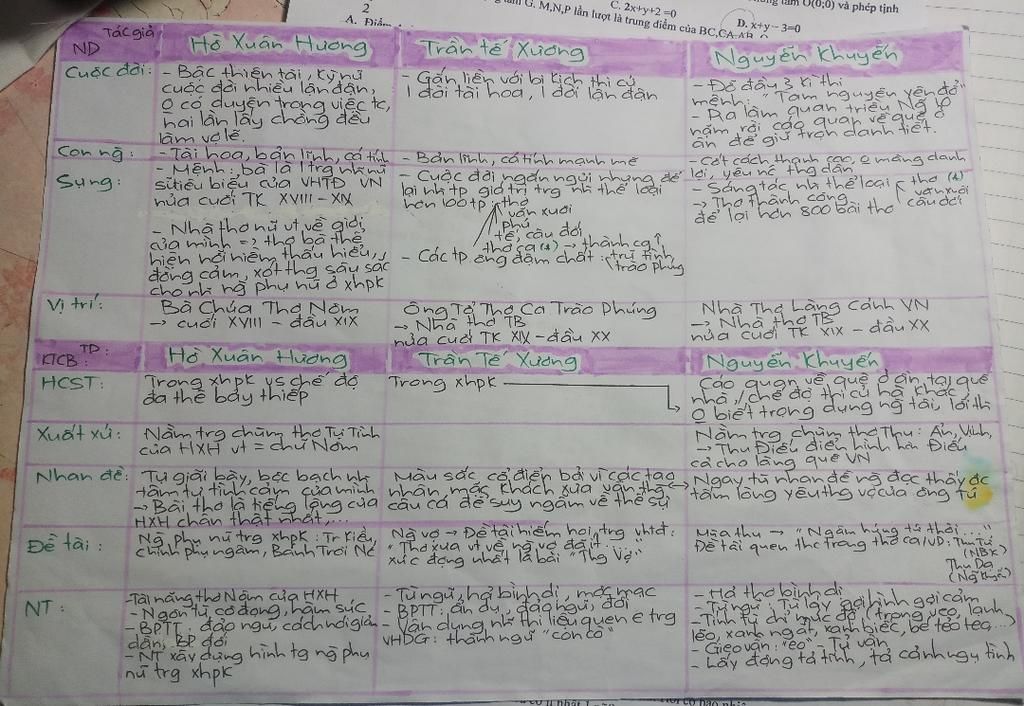 C. 2x+y+2=0
G. M,N,P lần lượt là trung điểm của BC,CA
O(0;0) và phép tịnh
D. x+y-3=0
2
A. Điểm
Tác giả
ND
Hồ Xuân Hương
Trần tế Xương
Nguyễn Khuyến
Cuộc đời:
- Bậc thiên tài, kỳ nữ
cuộc đời nhiều lận đận,
0 có duyên trong việc tc,
hai lần lấy chồng đều
làm vợ lẽ.
- Gắn liền với bi kịch thi cử
1 đời tài hoa, 1 đời lận đận
- Đỗ đầu 3 kì thi
mệnh: "Tam nguyên yên đổ"
- Ra làm quan triều Ng
năm rồi cáo quan về quê ở
ẩn để giữ trọn danh tiết.
Con ng:
- Tài hoa, bản lĩnh, cá tính
- Bản lĩnh, cá tính mạnh mẽ
- Cốt cách thanh cao, 0 màng danh
lợi, yêu nc thg dân
Sự ng:
- Mệnh: bà là 1 trg nh nữ
sĩ tiêu biểu của VHTĐ VN
nửa cuối TK XVIII - XIX
- Nhà thơ nữ vt về giới
của mình => thơ bà thể
hiện nỗi niềm thấu hiểu,
đồng cảm, xót thg sâu sắc
cho nh ng phụ nữ ở xhpk
- Cuộc đời ngắn ngủi nhưng để
lại nh tp giá trị trg nh thể loại
hơn 100 tp: thơ
văn xuôi
phú
tế, câu đối
thơ ca (*) → thành ca
- Các tp ông đậm chất: trữ tình,
trào phúng
- Sáng tác nh thể loại thơ (*)
văn xuôi
câu đối
→ Thơ thành công
để lại hơn 800 bài thơ
Vị trí:
Bà Chúa Thơ Nôm
→ cuối XVIII - đầu XIX
Ông Tổ Thơ Ca Trào Phúng
→ Nhà thơ TB
nửa cuối TK XIX - đầu XX
Nhà Thơ Làng Cảnh VN
→ Nhà thơ TB
nửa cuối TK XIX - đầu XX
TP:
KTCB:
Hồ Xuân Hương
Trần Tế Xương
Nguyễn Khuyến
HCST:
Trong xhpk vs chế độ
đa thê bảy thiếp
Trong xhpk
Cáo quan về quê ở ẩn tại quê
nhà, chế độ thi cử hà khắc
0 biết trọng dụng ng tài, lỗi th
Xuất xứ:
Nằm trg chùm thơ Tự Tình
của HXH vt = chữ Nôm
Nằm trg chùm thơ Thu: Ẩm, Vịnh,
→ Thu Điếu điển hình hơn Điếu
cả cho làng quê VN
Nhan đề:
Tự giãi bày, bộc bạch nh
tâm tư tình cảm của mình
→ Bài thơ là tiếng lòng của
HXH chân thật nhất,...
Màu sắc cổ điển bởi vì các tao
nhân, mặc khách xưa vốn thg
câu cá để suy ngẫm về thế sự
Ngay từ nhan đề ng đọc thấy đc
tấm lòng yêu thg vợ của ông tú
Đề tài:
Ng phụ nữ trg xhpk: Tr Kiều,
chinh phụ ngâm, Bánh Trôi Nc
Ng vợ → Đề tài hiếm hoi trg vhtđ:
"Thơ xưa vt về ng vợ đã ít ..."
xúc động nhất là bài "Thg Vợ"
Mùa thu → "Ngẫu hứng tứ thời ..."
Đề tài quen thc trong thơ ca/VD: Thu Tứ
(NBK)
Thu Dạ
(Ng Khuyến)
NT:
- Tài năng thơ Nôm của HXH
- Ngôn từ cô đọng, hàm súc
- BPTT: đảo ngữ, cách nói giản
dân, BP đối
- NT xây dựng hình tg ng phụ
nữ trg xhpk
- Từ ngữ, h/a bình dị, mộc mạc
- BPTT: ẩn dụ, đảo ngữ, đối
- Vận dụng nh thi liệu quen € trg
VHDG: thành ngữ "con cò"
- H/a thơ bình dị
- Từ ngữ: Từ láy gợi hình gợi cảm
- Tính từ chỉ mức độ (trong veo, lạnh
lẽo, xanh ngắt, xanh biếc, bé tẻo teo,...)
- Gieo vần: "eo" - Tử vận
- Lấy động tả tĩnh, tả cảnh ngụ tình